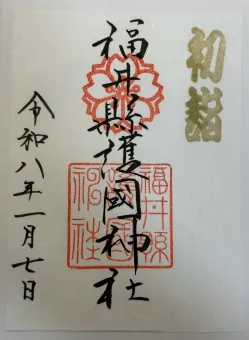 初詣
福井縣護國神社
令和八年一月七日
福井縣
護國
神社